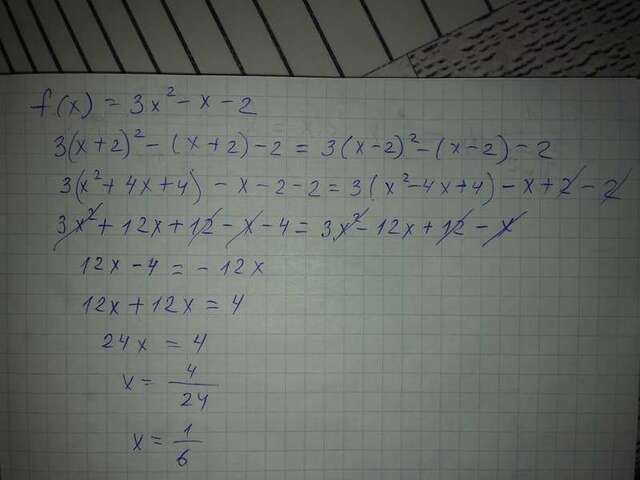 f(x) = 3x² - x - 2
3(x+2)² - (x+2) - 2 = 3(x-2)² - (x-2) - 2
3(x² + 4x + 4) - x - 2 - 2 = 3(x² - 4x + 4) - x + 2 - 2
3x² + 12x + 12 - x - 4 = 3x² - 12x + 12 - x
12x - 4 = - 12x
12x + 12x = 4
24x = 4
x = 4/24
x = 1/6